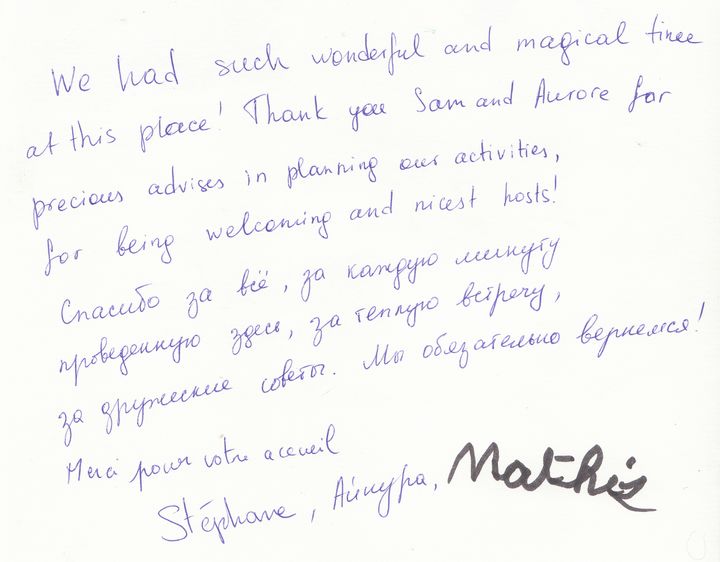 We had such wonderful and magical time
at this place! Thank you Sam and Aurore for
precious advises in planning our activities,
for being welcoming and nicest hosts!
Спасибо за всё, за каждую минуту
проведенную здесь, за теплую встречу,
за дружеские советы. Мы обязательно вернемся!
Merci pour votre accueil
Stéphane, Айнура, Mathis